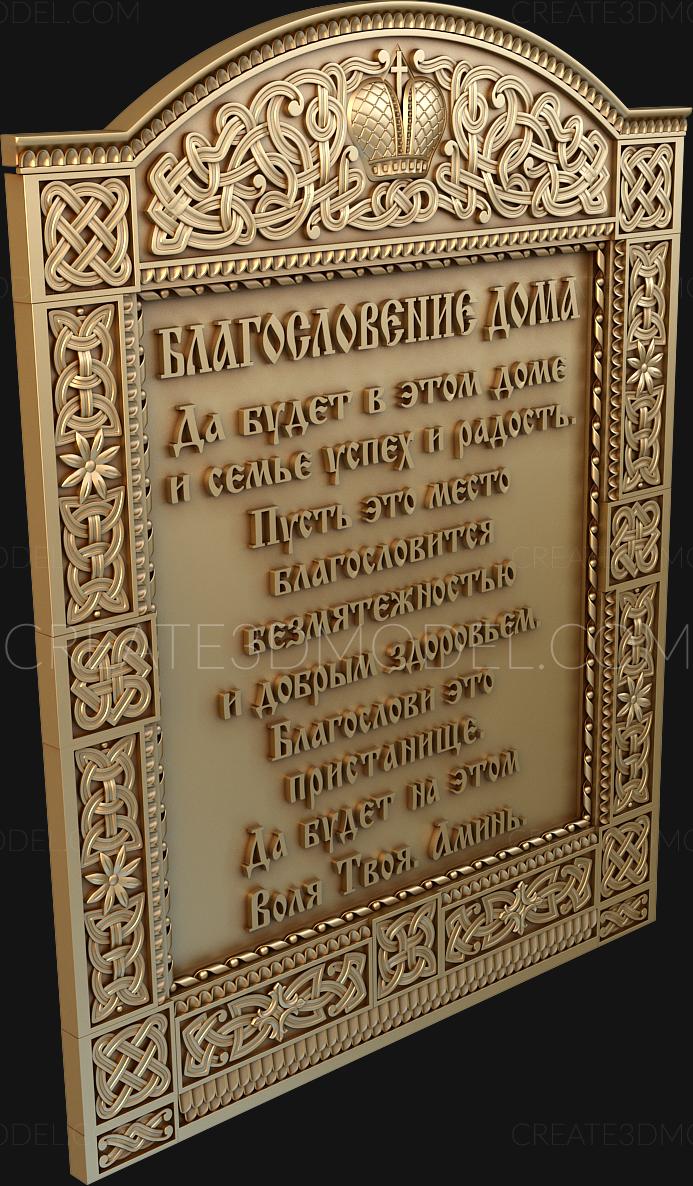 CREATE3DMODEL.COM
БЛАГОСЛОВЕНИЕ ДОМА
Да будет в этом доме
и семье успех и радость.
Пусть это место
благословится
безмятежностью
CREATE3DMODEL.COM
и добрым здоровьем.
Благослови это
пристанище.
Да будет на этом
Воля Твоя. Аминь.
CREATE3DMODEL.COM